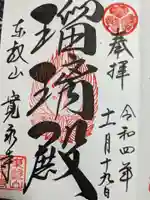 奉拝
令和四年
十一月十九日
瑠璃殿
東叡山 寛永寺